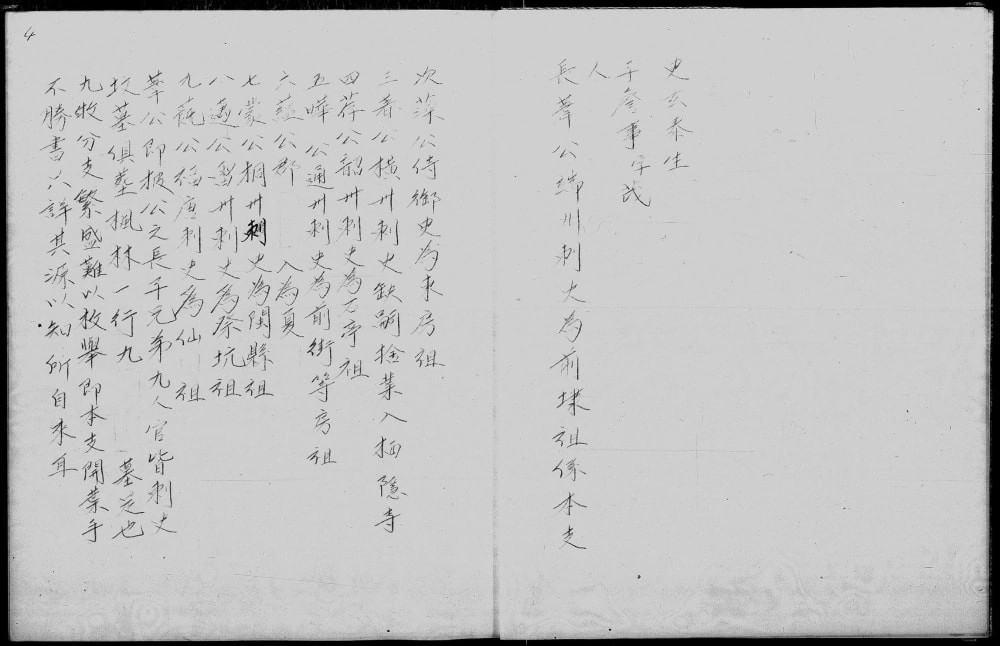 史玄泰生
子詹事字氏
人
長葦公端州刺史為前埭祖係本支
次藻公侍御史為東房祖
三著公橫州刺史缺嗣捨業入栖隱寺
四荐公韶州刺史為方亭祖
五曄 公通州刺史為前街等房祖
六蘊公郡 入為夏
七蒙公桐州刺史為閩縣祖
八邁公雷州刺史為祭坑祖
九蕋公福唐刺史為仙 祖
葦公即披公之長子兄弟九人官皆刺史
坟墓俱塟楓林一行九 墓是也
九做分支繁盛難以枚舉即本支開葉手
不勝書只詳其源以知所自來耳
4